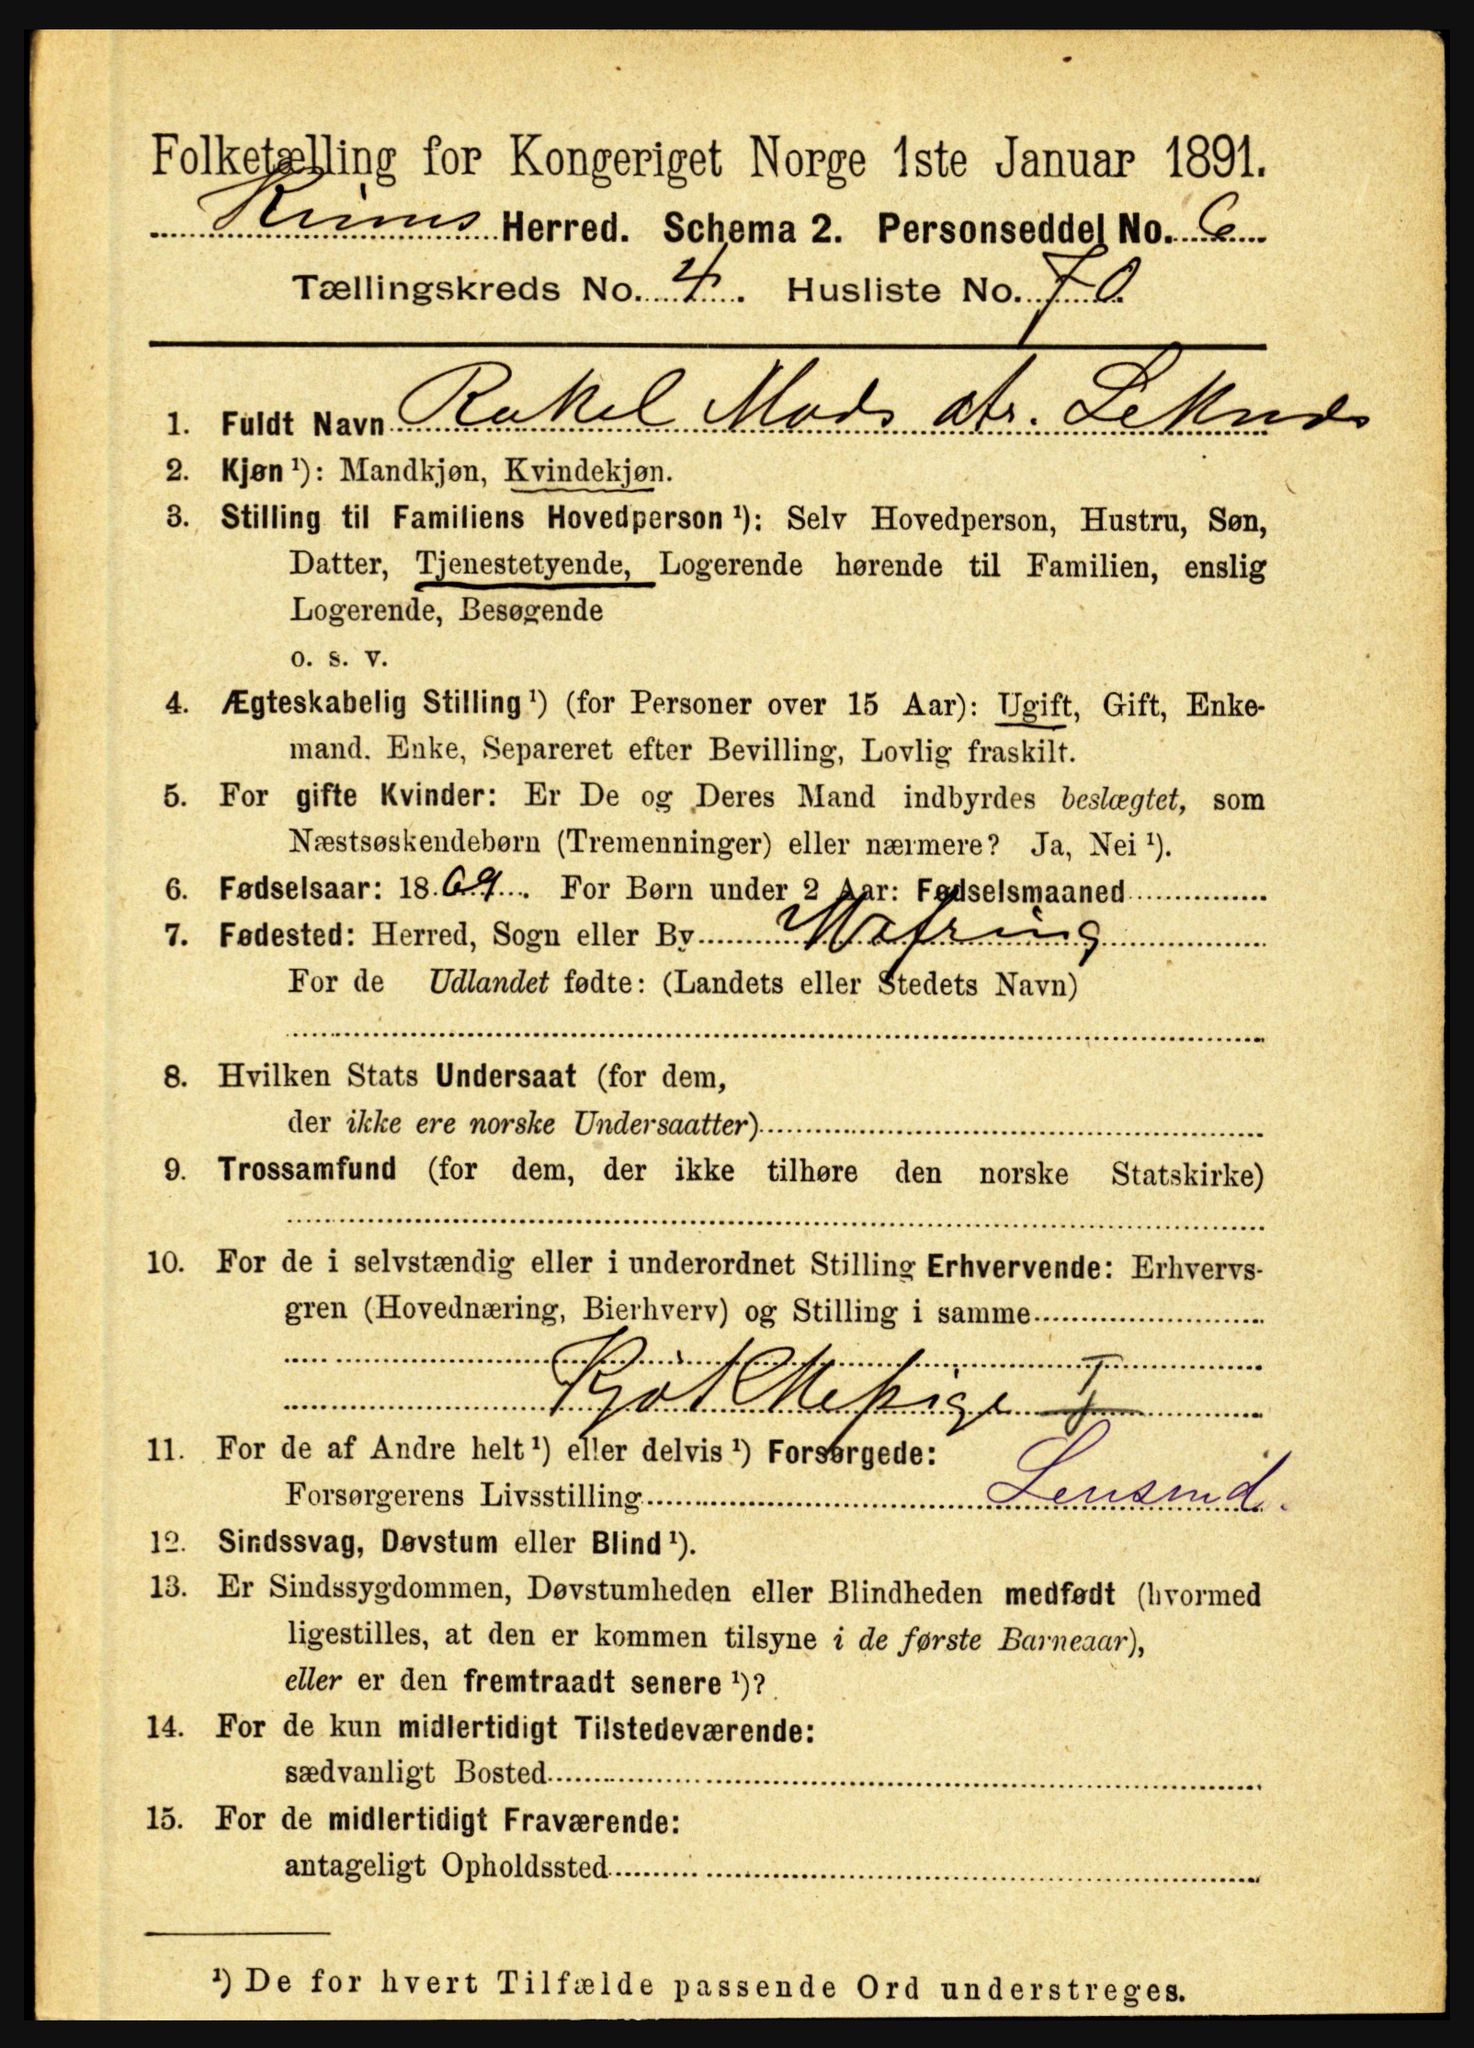 Folketælling for Kongeriget Norge 1ste Januar 1891.
Kinns Herred. Schema 2. Personseddel No. 6
Tællingskreds No. 4. Husliste No. 70
1. Fuldt Navn Rakel Mads dtr. Leknds
2. Kjøn ¹): Mandkjøn, Kvindekjøn.
3. Stilling til Familiens Hovedperson ¹): Selv Hovedperson, Hustru, Søn,
Datter, Tjenestetyende, Logerende hørende til Familien, enslig
Logerende, Besøgende
o. s. v.
4. Ægteskabelig Stilling ¹) (for Personer over 15 Aar): Ugift, Gift, Enke-
mand. Enke, Separeret efter Bevilling, Lovlig fraskilt.
5. For gifte Kvinder: Er De og Deres Mand indbyrdes beslægtet, som
Næstsøskendebørn (Tremenninger) eller nærmere? Ja, Nei ¹).
6. Fødselsaar: 1869. For Børn under 2 Aar: Fødselsmaaned
7. Fødested: Herred, Sogn eller By
For de Udlandet fødte: (Landets eller Stedets Navn)
8. Hvilken Stats Undersaat (for dem,
der ikke ere norske Undersaatter)
9. Trossamfund (for dem, der ikke tilhøre den norske Statskirke)
10. For de i selvstændig eller i underordnet Stilling Erhvervende: Erhvervs-
gren (Hovednæring, Bierhverv) og Stilling i samme
11. For de af Andre helt ¹) eller delvis ¹) Forsørgede:
Forsørgerens Livsstilling Lensmd.
12. Sindssvag, Døvstum eller Blind ¹).
13. Er Sindssygdommen, Døvstumheden eller Blindheden medfødt (hvormed
ligestilles, at den er kommen tilsyne i de første Barneaar),
eller er den fremtraadt senere ¹)?
14. For de kun midlertidigt Tilstedeværende:
sædvanligt Bosted
15. For de midlertidigt Fraværende:
antageligt Opholdssted
¹) De for hvert Tilfælde passende Ord understreges.